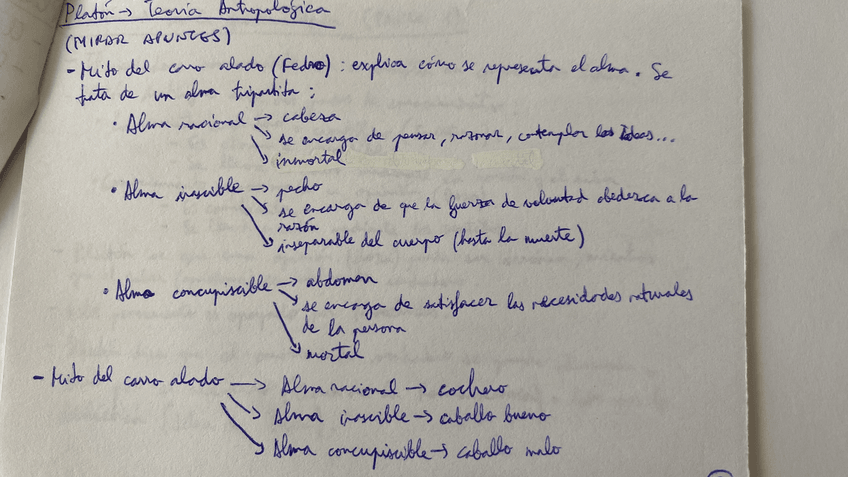 Platón → Teoría Antropológica
(MIRAR APUNTES)
- Mito del carro alado (Fedro): explica cómo se representa el alma. Se
trata de un alma tripartita:
• Alma racional → cabeza
→ se encarga de pensar, razonar, contemplar las Ideas...
→ inmortal
• Alma irascible → pecho
→ se encarga de que la fuerza de voluntad obedezca a la
razón
→ inseparable del cuerpo (hasta la muerte)
• Alma concupiscible → abdomen
→ se encarga de satisfacer las necesidades naturales
de la persona
→ mortal
- Mito del carro alado → Alma racional → cochero
→ Alma irascible → caballo bueno
→ Alma concupiscible → caballo malo